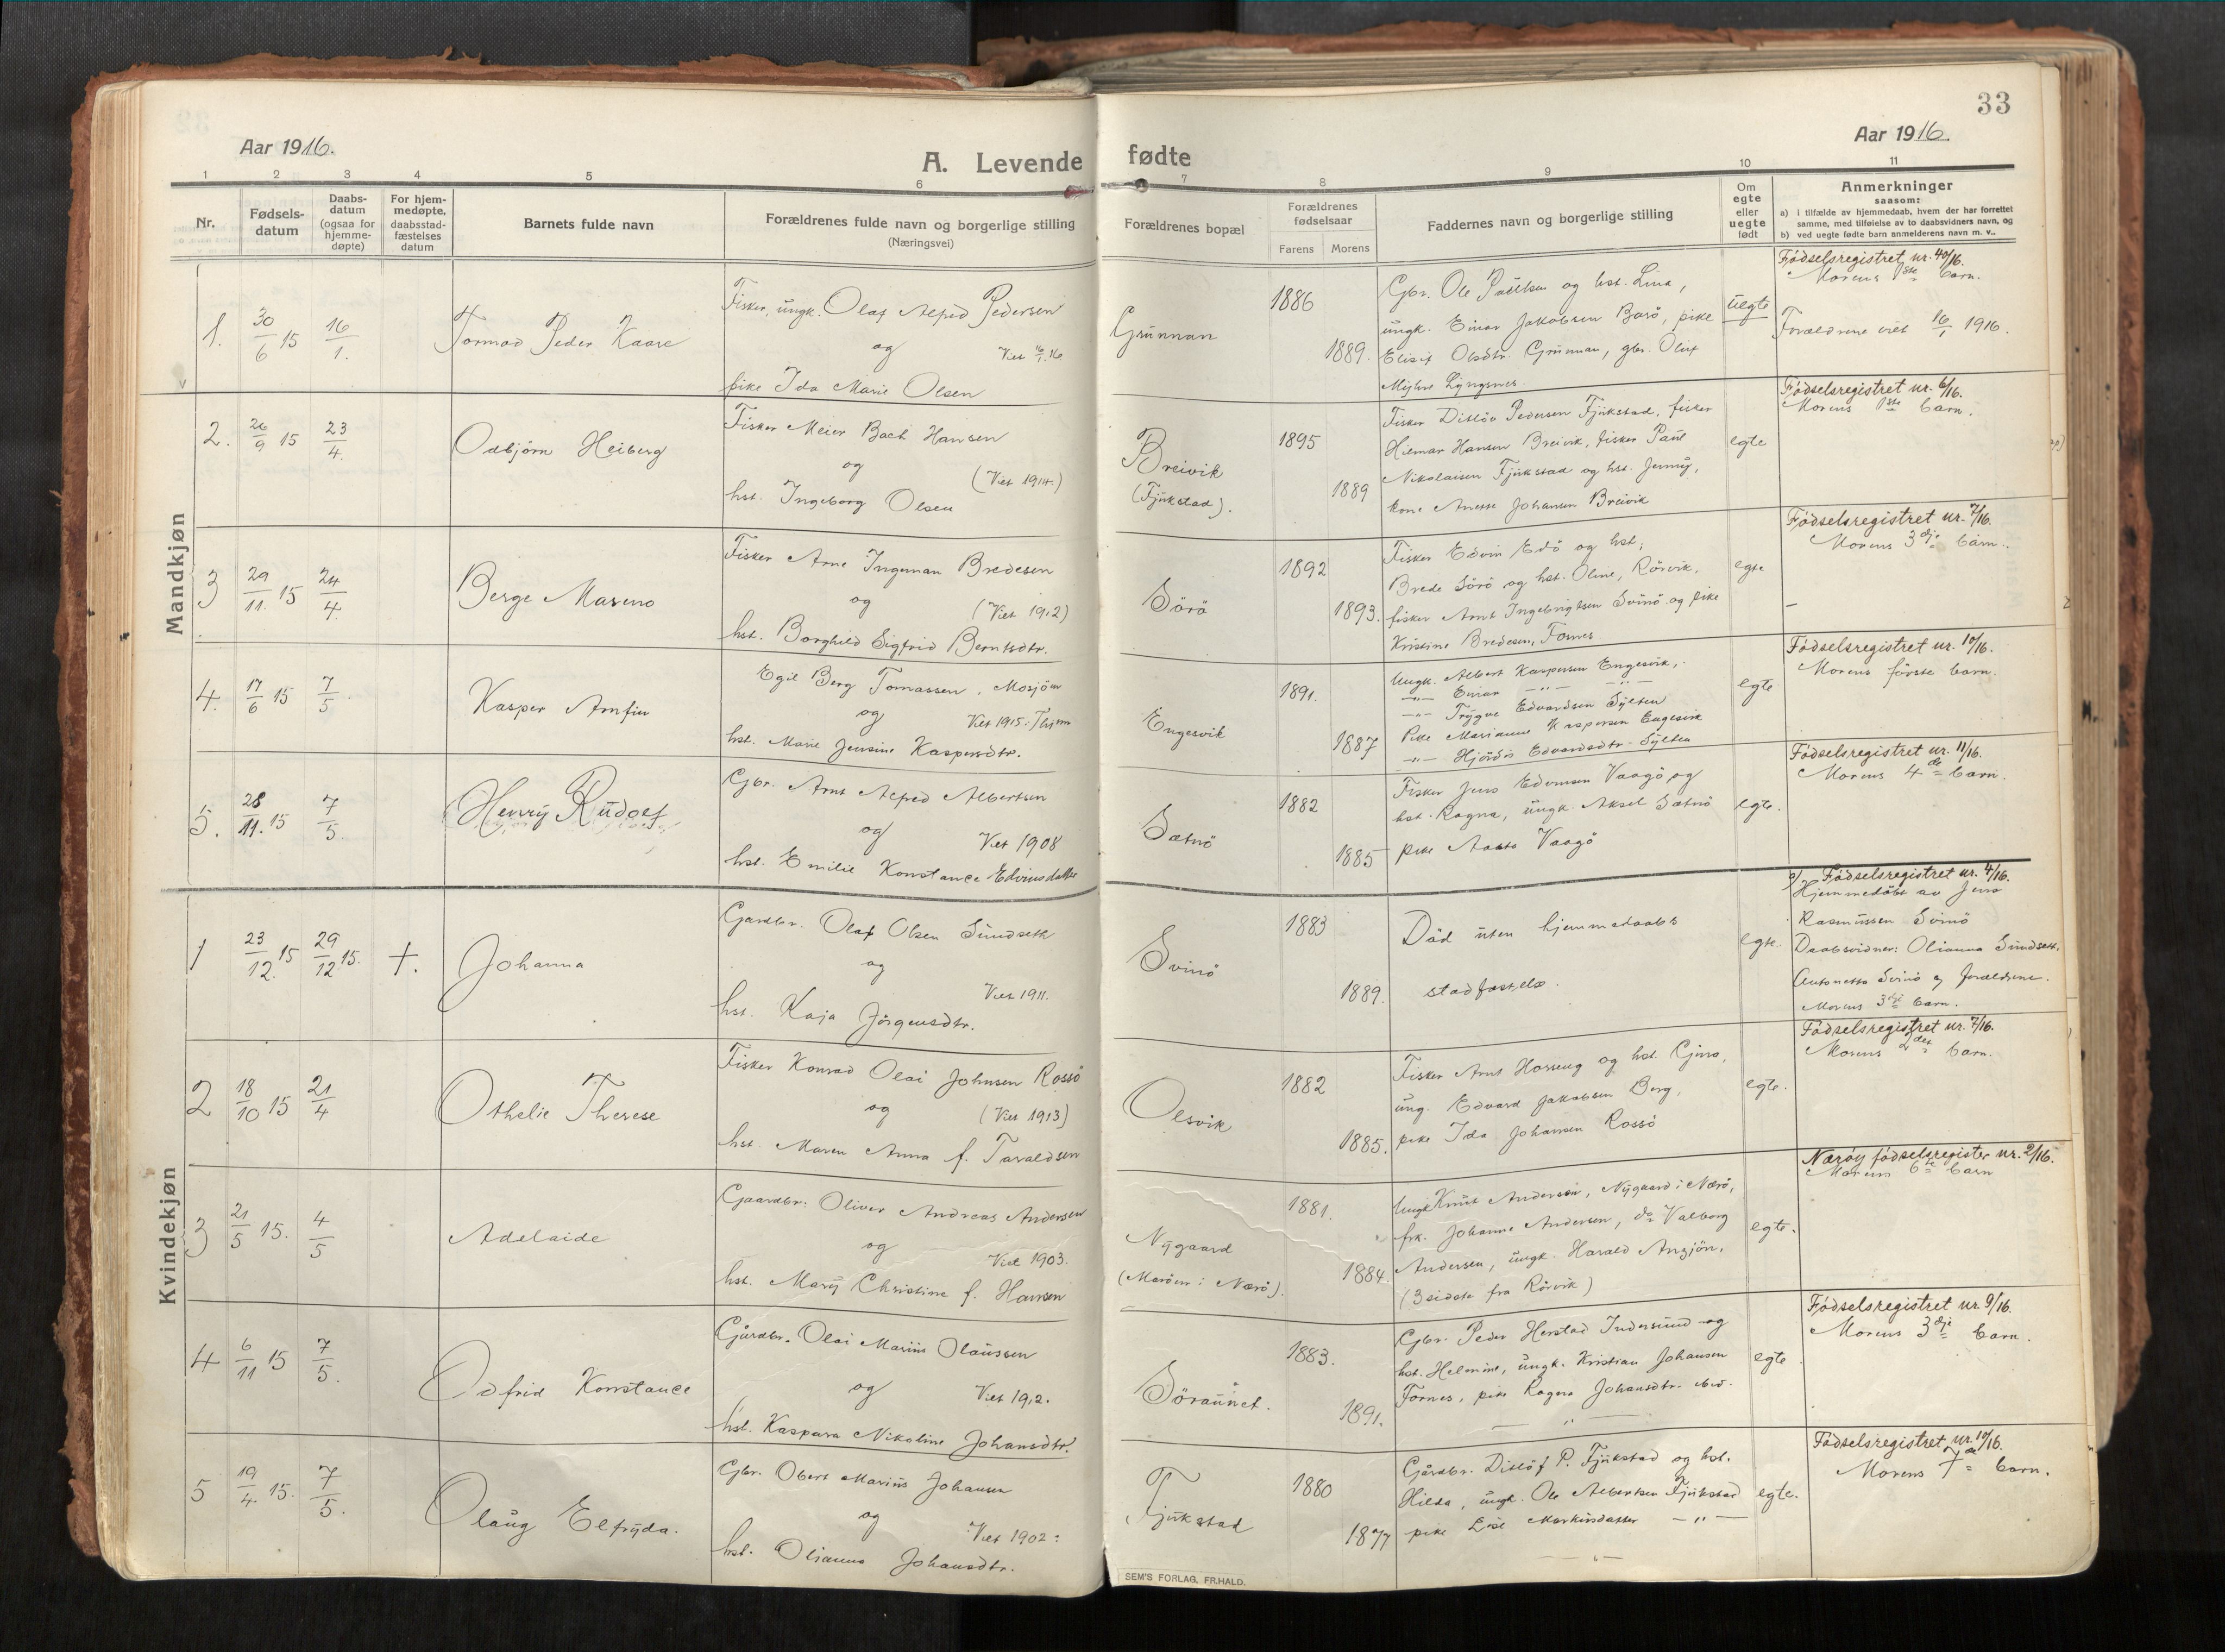 33
Aar 1916.
Aar 1916.
A. Levende fødte
1 2 3 4 5 6 7 8 9 10 11
Nr.
Fødsels-
datum
Daabs-
datum
(ogsaa for
hjemme-
døpte)
For hjem-
medøpte,
daabsstad-
fæstelses
datum
Barnets fulde navn
Forældrenes fulde navn og borgerlige stilling
(Næringsvei)
Forældrenes bopæl
Forældrenes
fødselsaar
Farens Morens
Faddernes navn og borgerlige stilling
Om
egte
eller
uegte
født
Anmerkninger
saasom:
a) i tilfælde av hjemmedaab, hvem der har forrettet
samme, med tilføielse av to daabsvidners navn, og
b) ved uegte fødte barn anmelderens navn m. v..
Mandkjøn
1. 30/6 15 16/1.
Tormod Peder Kaare
Fisker, ungk. Olaf Alfred Pedersen
og Viet 16/1. 16
pike Ida Marie Olsen
Grunnan
1886
1889.
Gbr. Ole Paulsen og hst. Lina,
ungk. Einar Jakobsen Borø, pike
Elisif Olsdtr. Grunnan, gbr. Oluf
Lyngsnes.
uegte
Fødselsregistret nr. 40/16.
Morens 1ste barn.
Forældrene viet 16/1 1916.
2. 26/9 15 23/4.
Odbjørn Heiberg
Fisker Meier Bach Hansen
og (Viet 1914.)
hst. Ingeborg Olsen
Breivik
(Fjukstad).
1895
1889
Fisker Ditløv Pedersen Fjukstad, fisker
Hilmar Hansen Breivik, fisker Paul
Nikolaisen Fjukstad og hst. Jenny,
kone Anette Johansen Breivik
egte
Fødselsregistret nr. 6/16.
Morens 1ste barn.
3 29/11. 15 24/4.
Berge Mareno
Fisker Arne Ingeman Bredesen
og (Viet 1912)
hst. Borghild Sigfrid Berntsdtr.
Sørø
1892
1893.
Fisker Edvin Edø og hst;
Brede Sørø og hst. Oline, Rørvik,
fisker Arnt Ingebrigtsen Svinø og pike
Kristine Bredesen, Fornes.
egte
Fødselsregistret nr. 7/16.
Morens 3dje barn.
4. 17/6 15 7/5.
Kasper Arnfin
Egil Berg Tomassen, Mosjøen
og Viet 1915:
hst. Marie Jensine Kaspersdtr.
Engesvik
1891.
1887
Ungk. Albert Kaspersen Engesvik,
-"- Einar -"- -"-
-"- Trygve Edvardsen Sylten
Pike Marianne Kaspersen Engesvik
-"- Hjørdis Edvardsdtr. Sylten
egte
Fødselsregistret nr. 10/16.
Morens første barn.
5. 28/11. 15 7/5
Henry Rudolf
Gbr. Arnt Alfred Albertsen
og Viet 1908
hst. Emilie Konstance Edvinsdatter
Sætnø
1882
1885
Fisker Jens Edvinsen Vaagø og
hst. Ragna, ungk. Aksel Sætnø
pike Aasta Vaagø
egte.
Fødselsregistret nr. 11/16.
Morens 4de barn.
Kvindekjøn
1 23/12. 15 29/12. 15. +.
Johanna
Gaardbr. Olaf Olsen Sundseth
og Viet 1911.
hst. Kaja Jørgensdtr.
Svinø
1883
1889.
Død uten hjemmedaabs
stadfæstelse.
egte.
a) Fødselsregistret nr. 4/16.
Hjemmedøbt av Jens
Rasmussen Svinø
Daabsvidner: Olianna Sundseth,
Antonette Svinø og forældrene.
Morens 3dje barn.
2 18/10 15 21/4
Othelie Therese
Fisker Konrad Olai Johnsen Rossø
og (Viet 1913)
hst. Maren Anna f. Taraldsen
Olsvik
1882
1885.
Fisker Arnt Horseng og hst. Gina,
ung. Edvard Jakobsen Berg,
pike Ida Johansen Rossø
egte.
Fødselsregistret nr. 7/16.
Morens 2det barn.
3 21/5 15. 4/5
Adelaide
Gaardbr. Oliver Andreas Andersen
og Viet 1903.
hst. Mary Christine f. Hansen
Nygaard
(Marøen i Nærø).
1881.
1884.
Ungk Knut Andersen, Nygaard i Nærø,
frk. Johanne Andersen, do Valborg
Andersen, ungk. Harald Ansjøn,
(3 sidste fra Rørvik)
egte.
Nærøy fødselsregister nr. 2/16.
Morens 6te barn
4 6/11 15 7/5.
Odfrid Konstance
Gårdbr. Olai Marius Olaussen
og Viet 1912.
hst. Kaspara Nikoline Johansdtr.
Søraunet.
1883.
1891.
Gbr. Peder Herstad Indersund og
hst. Helmine, ungk. Kristian Johansen
Fornes, pike Ragna Johansdtr. ibid.
— " —
egte
Fødselsregistret nr. 9/16.
Morens 3dje barn.
5 19/4. 15. 7/5.
Olaug Elfryda.
Gbr. Obert Marius Johansen
og Viet 1902:
hst. Olianna Johansdtr.
Fjukstad
1880
1877
Gårdbr. Ditløf P. Fjukstad og hst.
Hilda, ungk. Ole Albertsen Fjukstad
pike Elise Markusdatter -"-
egte.
Fødselsregistret nr. 10/16.
Morens 7de barn.
SEM'S FORLAG, FR.HALD.